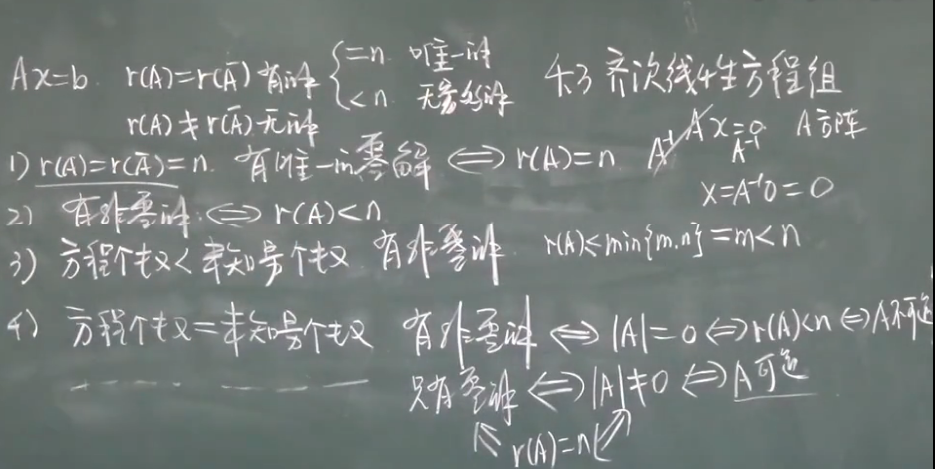 Ax=b. r(A)=r(Ā) 有解 { =n. 唯一解
<n. 无穷多解
r(A)≠r(Ā) 无解
4.3 齐次线性方程组
A⁻¹Ax=0 A方阵
A⁻¹
x=A⁻¹0=0
1) r(A)=r(Ā)=n. 有唯一解零解 ⇔ r(A)=n
2) 有非零解 ⇔ r(A)<n
3) 方程个数<未知量个数 有非零解. r(A)≤min{m,n}=m<n
4) 方程个数=未知量个数 有非零解 ⇔ |A|=0 ⇔ r(A)<n ⇔ A不可逆
只有零解 ⇔ |A|≠0 ⇔ A可逆
r(A)=n